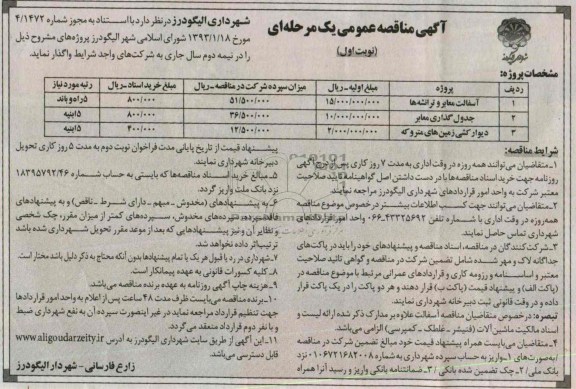 آگهی مناقصه عمومی یک مرحله‌ای
(نوبت اول)
شهرداری الیگودرز در نظر دارد با استناد به مجوز شماره ۴/۱۴۷۲
مورخ ۱۳۹۳/۱/۱۸ شورای اسلامی شهر الیگودرز پروژه‌های مشروح ذیل
را در نیمه دوم سال جاری به شرکت‌های واجد شرایط واگذار نماید.
مشخصات پروژه:
ردیف پروژه مبلغ اولیه-ریال میزان سپرده شرکت در مناقصه-ریال مبلغ خرید اسناد-ریال رتبه مورد نیاز
۱ آسفالت معابر و ترانشه‌ها ۱۵/۰۰۰/۰۰۰/۰۰۰ ۵۱/۵۰۰/۰۰۰ ۸۰۰/۰۰۰ ۵ راه و باند
۲ جدول گذاری معابر ۱۰/۰۰۰/۰۰۰/۰۰۰ ۳۶/۵۰۰/۰۰۰ ۸۰۰/۰۰۰ ۵ ابنیه
۳ دیوار کشی زمین‌های متروکه ۲/۰۰۰/۰۰۰/۰۰۰ ۱۲/۵۰۰/۰۰۰ ۴۰۰/۰۰۰ ۵ ابنیه
شرایط مناقصه:
۱-متقاضیان می‌توانند همه روزه در وقت اداری به مدت ۷ روز کاری پس از درج آگهی
روزنامه جهت خرید اسناد مناقصه‌ها با در دست داشتن اصل گواهینامه تائید صلاحیت
معتبر شرکت به واحد امور قراردادهای شهرداری الیگودرز مراجعه نمایند.
۲-متقاضیان می‌توانند جهت کسب اطلاعات بیشتر در خصوص موضوع مناقصه
همه‌روزه در وقت اداری با شماره تلفن ۴۳۳۲۵۶۹۲-۰۶۶ واحد امور قراردادهای
شهرداری تماس حاصل نمایند.
۳-شرکت کنندگان در مناقصه، اسناد مناقصه و پیشنهادهای خود را باید در پاکت‌های
جداگانه لاک و مهر شده شامل تضمین شرکت در مناقصه و گواهی تائید صلاحیت
معتبر و اساسنامه و رزومه کاری و قراردادهای عمرانی مرتبط با موضوع مناقصه در
(پاکت الف) و پیشنهاد قیمت (پاکت ب) قرار دهند و هر دو پاکت را در یک پاکت قرار
داده و در وقت قانونی ثبت دبیرخانه شهرداری نمایند.
تبصره: در خصوص متقاضیان مناقصه آسفالت علاوه بر مدارک ذکر شده ارائه لیست و
اسناد مالکیت ماشین آلات (فنیشر ـ غلطک ـ کمپرسی) الزامی می‌باشد.
۴-متقاضیان می‌بایست همراه پیشنهاد قیمت خود مبالغ تضمین شرکت در مناقصه
را به‌صورت‌های ۱-واریز به حساب سپرده شهرداری به شماره ۰۱۰۶۷۲۱۶۸۲۰۰۸ نزد
بانک ملی/ ۲-چک تضمین شده بانکی / ۳-ضمانتنامه بانکی واریز و رسید آنرا همراه
پیشنهاد قیمت از تاریخ پایانی مدت فراخوان نوبت دوم به مدت ۵ روز کاری تحویل
دبیرخانه شهرداری نمایند.
۵-مبالغ خرید اسناد مناقصه‌ها که بایستی به حساب شماره ۱۸۳۹۵۷۹۲/۴۶
نزد بانک ملت واریز گردد.
۶-به پیشنهادهای (مخدوش ـ مبهم ـ دارای شرط ـ ناقص) و به پیشنهادهای
فاقد سپرده، سپرده‌های مخدوش، سپرده‌های کمتر از میزان مقرر، چک شخصی
و نظایر آن و نیز پیشنهادهایی که بعد از موعد مقرر تحویل شهرداری شده باشد
ترتیب‌اثر داده نخواهد شد.
۷-شهرداری در رد یا قبول هر یک یا تمام پیشنهادها بدون آنکه محتاج به ذکر دلیل باشد مختار است.
۸-کلیه کسورات قانونی به عهده پیمانکار است.
۹-هزینه چاپ آگهی روزنامه به عهده برنده مناقصه می‌باشد.
۱۰-برنده مناقصه می‌بایست ظرف مدت ۴۸ ساعت پس از اعلام به واحد امور قراردادها
جهت تنظیم قرارداد مراجعه نماید در غیر اینصورت سپرده آن به نفع شهرداری ضبط
و با نفر دوم قرارداد منعقد می‌گردد.
۱۱-این آگهی از طریق سایت شهرداری الیگودرز به آدرس www.aligoudarzeity.ir
قابل دسترسی می‌باشد.
زارع فارسانی - شهردار الیگودرز